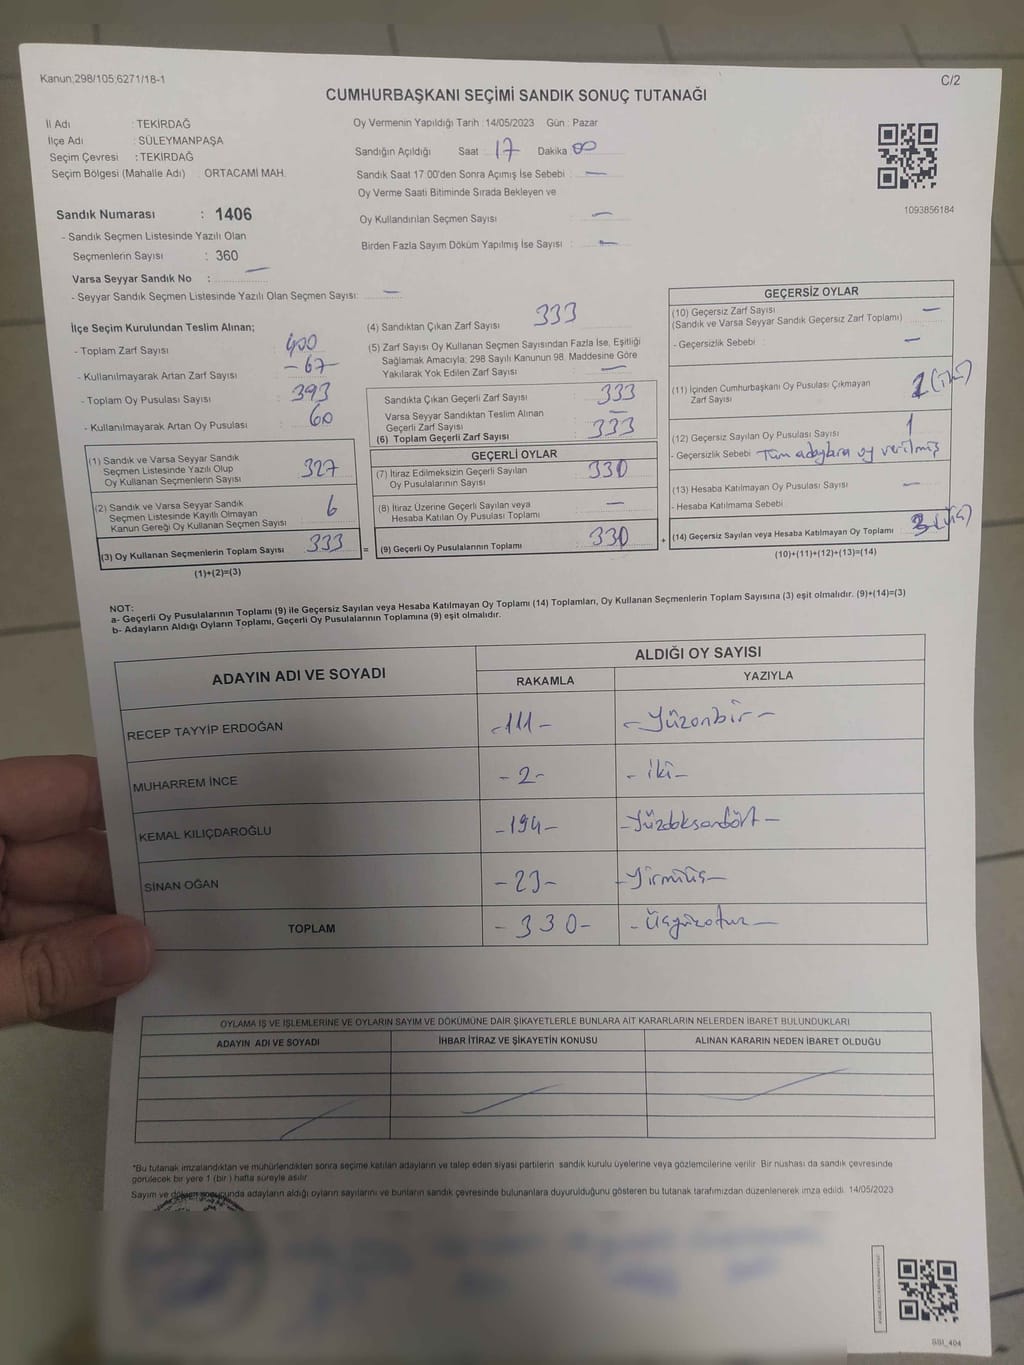 Kanun;298/105,6271/18-1
C/2
CUMHURBAŞKANI SEÇİMİ SANDIK SONUÇ TUTANAĞI
İl Adı : TEKİRDAĞ
İlçe Adı : SÜLEYMANPAŞA
Seçim Çevresi : TEKİRDAĞ
Seçim Bölgesi (Mahalle Adı) : ORTACAMİ MAH.
Sandık Numarası : 1406
- Sandık Seçmen Listesinde Yazılı Olan
Seçmenlerin Sayısı : 360
Varsa Seyyar Sandık No : —
- Seyyar Sandık Seçmen Listesinde Yazılı Olan Seçmen Sayısı: —
Oy Vermenin Yapıldığı Tarih :14/05/2023 Gün : Pazar
Sandığın Açıldığı Saat : 17 Dakika : 00
Sandık Saat 17:00'den Sonra Açımış İse Sebebi : —
Oy Verme Saati Bitiminde Sırada Bekleyen ve
Oy Kullandırılan Seçmen Sayısı : —
Birden Fazla Sayım Döküm Yapılmış İse Sayısı : —
1093856184
İlçe Seçim Kurulundan Teslim Alınan;
- Toplam Zarf Sayısı : 400
- Kullanılmayarak Artan Zarf Sayısı : -67-
- Toplam Oy Pusulası Sayısı : 393
- Kullanılmayarak Artan Oy Pusulası : 60
(1) Sandık ve Varsa Seyyar Sandık
Seçmen Listesinde Yazılı Olup
Oy Kullanan Seçmenlerin Sayısı : 327
(2) Sandık ve Varsa Seyyar Sandık
Seçmen Listesinde Kayıtlı Olmayan
Kanun Gereği Oy Kullanan Seçmen Sayısı : 6
(3) Oy Kullanan Seçmenlerin Toplam Sayısı : 333
(1)+(2)=(3)
(4) Sandıktan Çıkan Zarf Sayısı : 333
(5) Zarf Sayısı Oy Kullanan Seçmen Sayısından Fazla İse, Eşitliği
Sağlamak Amacıyla; 298 Sayılı Kanunun 98. Maddesine Göre
Yakılarak Yok Edilen Zarf Sayısı : —
Sandıkta Çıkan Geçerli Zarf Sayısı : 333
Varsa Seyyar Sandıktan Teslim Alınan
Geçerli Zarf Sayısı : —
(6) Toplam Geçerli Zarf Sayısı : 333
GEÇERLİ OYLAR
(7) İtiraz Edilmeksizin Geçerli Sayılan
Oy Pusulalarının Sayısı : 330
(8) İtiraz Üzerine Geçerli Sayılan veya
Hesaba Katılan Oy Pusulası Toplamı : —
= (9) Geçerli Oy Pusulalarının Toplamı : 330 +
GEÇERSİZ OYLAR
(10) Geçersiz Zarf Sayısı : —
(Sandık ve Varsa Seyyar Sandık Geçersiz Zarf Toplamı)
- Geçersizlik Sebebi : —
(11) İçinden Cumhurbaşkanı Oy Pusulası Çıkmayan
Zarf Sayısı : 2 (iki)
(12) Geçersiz Sayılan Oy Pusulası Sayısı : 1
- Geçersizlik Sebebi : Tüm adaylara oy verilmiş
(13) Hesaba Katılmayan Oy Pusulası Sayısı : —
- Hesaba Katılmama Sebebi
(14) Geçersiz Sayılan veya Hesaba Katılmayan Oy Toplamı : 3 (üç)
(10)+(11)+(12)+(13)=(14)
NOT:
a- Geçerli Oy Pusulalarının Toplamı (9) ile Geçersiz Sayılan veya Hesaba Katılmayan Oy Toplamı (14) Toplamları, Oy Kullanan Seçmenlerin Toplam Sayısına (3) eşit olmalıdır. (9)+(14)=(3)
b- Adayların Aldığı Oyların Toplamı, Geçerli Oy Pusulalarının Toplamına (9) eşit olmalıdır.
ADAYIN ADI VE SOYADI
ALDIĞI OY SAYISI
RAKAMLA YAZIYLA
RECEP TAYYİP ERDOĞAN -111- -Yüzonbir-
MUHARREM İNCE -2- -iki-
KEMAL KILIÇDAROĞLU -194- -Yüzdoksandört-
SİNAN OĞAN -23- -Yirmiüç-
TOPLAM -330- -Üçyüzotuz-
OYLAMA İŞ VE İŞLEMLERİNE VE OYLARIN SAYIM VE DÖKÜMÜNE DAİR ŞİKAYETLERLE BUNLARA AİT KARARLARIN NELERDEN İBARET BULUNDUKLARI
ADAYIN ADI VE SOYADI İHBAR İTİRAZ VE ŞİKAYETİN KONUSU ALINAN KARARIN NEDEN İBARET OLDUĞU
*Bu tutanak imzalandıktan ve mühürlendikten sonra seçime katılan adayların ve talep eden siyasi partilerin sandık kurulu üyelerine veya gözlemcilerine verilir. Bir nüshası da sandık çevresinde
görülecek bir yere 1 (bir) hafta süreyle asılır
Sayım ve döküm sonucunda adayların aldığı oyların sayılarını ve bunların sandık çevresinde bulunanlara duyurulduğunu gösteren bu tutanak tarafımızdan düzenlenerek imza edildi. 14/05/2023
SSI_404